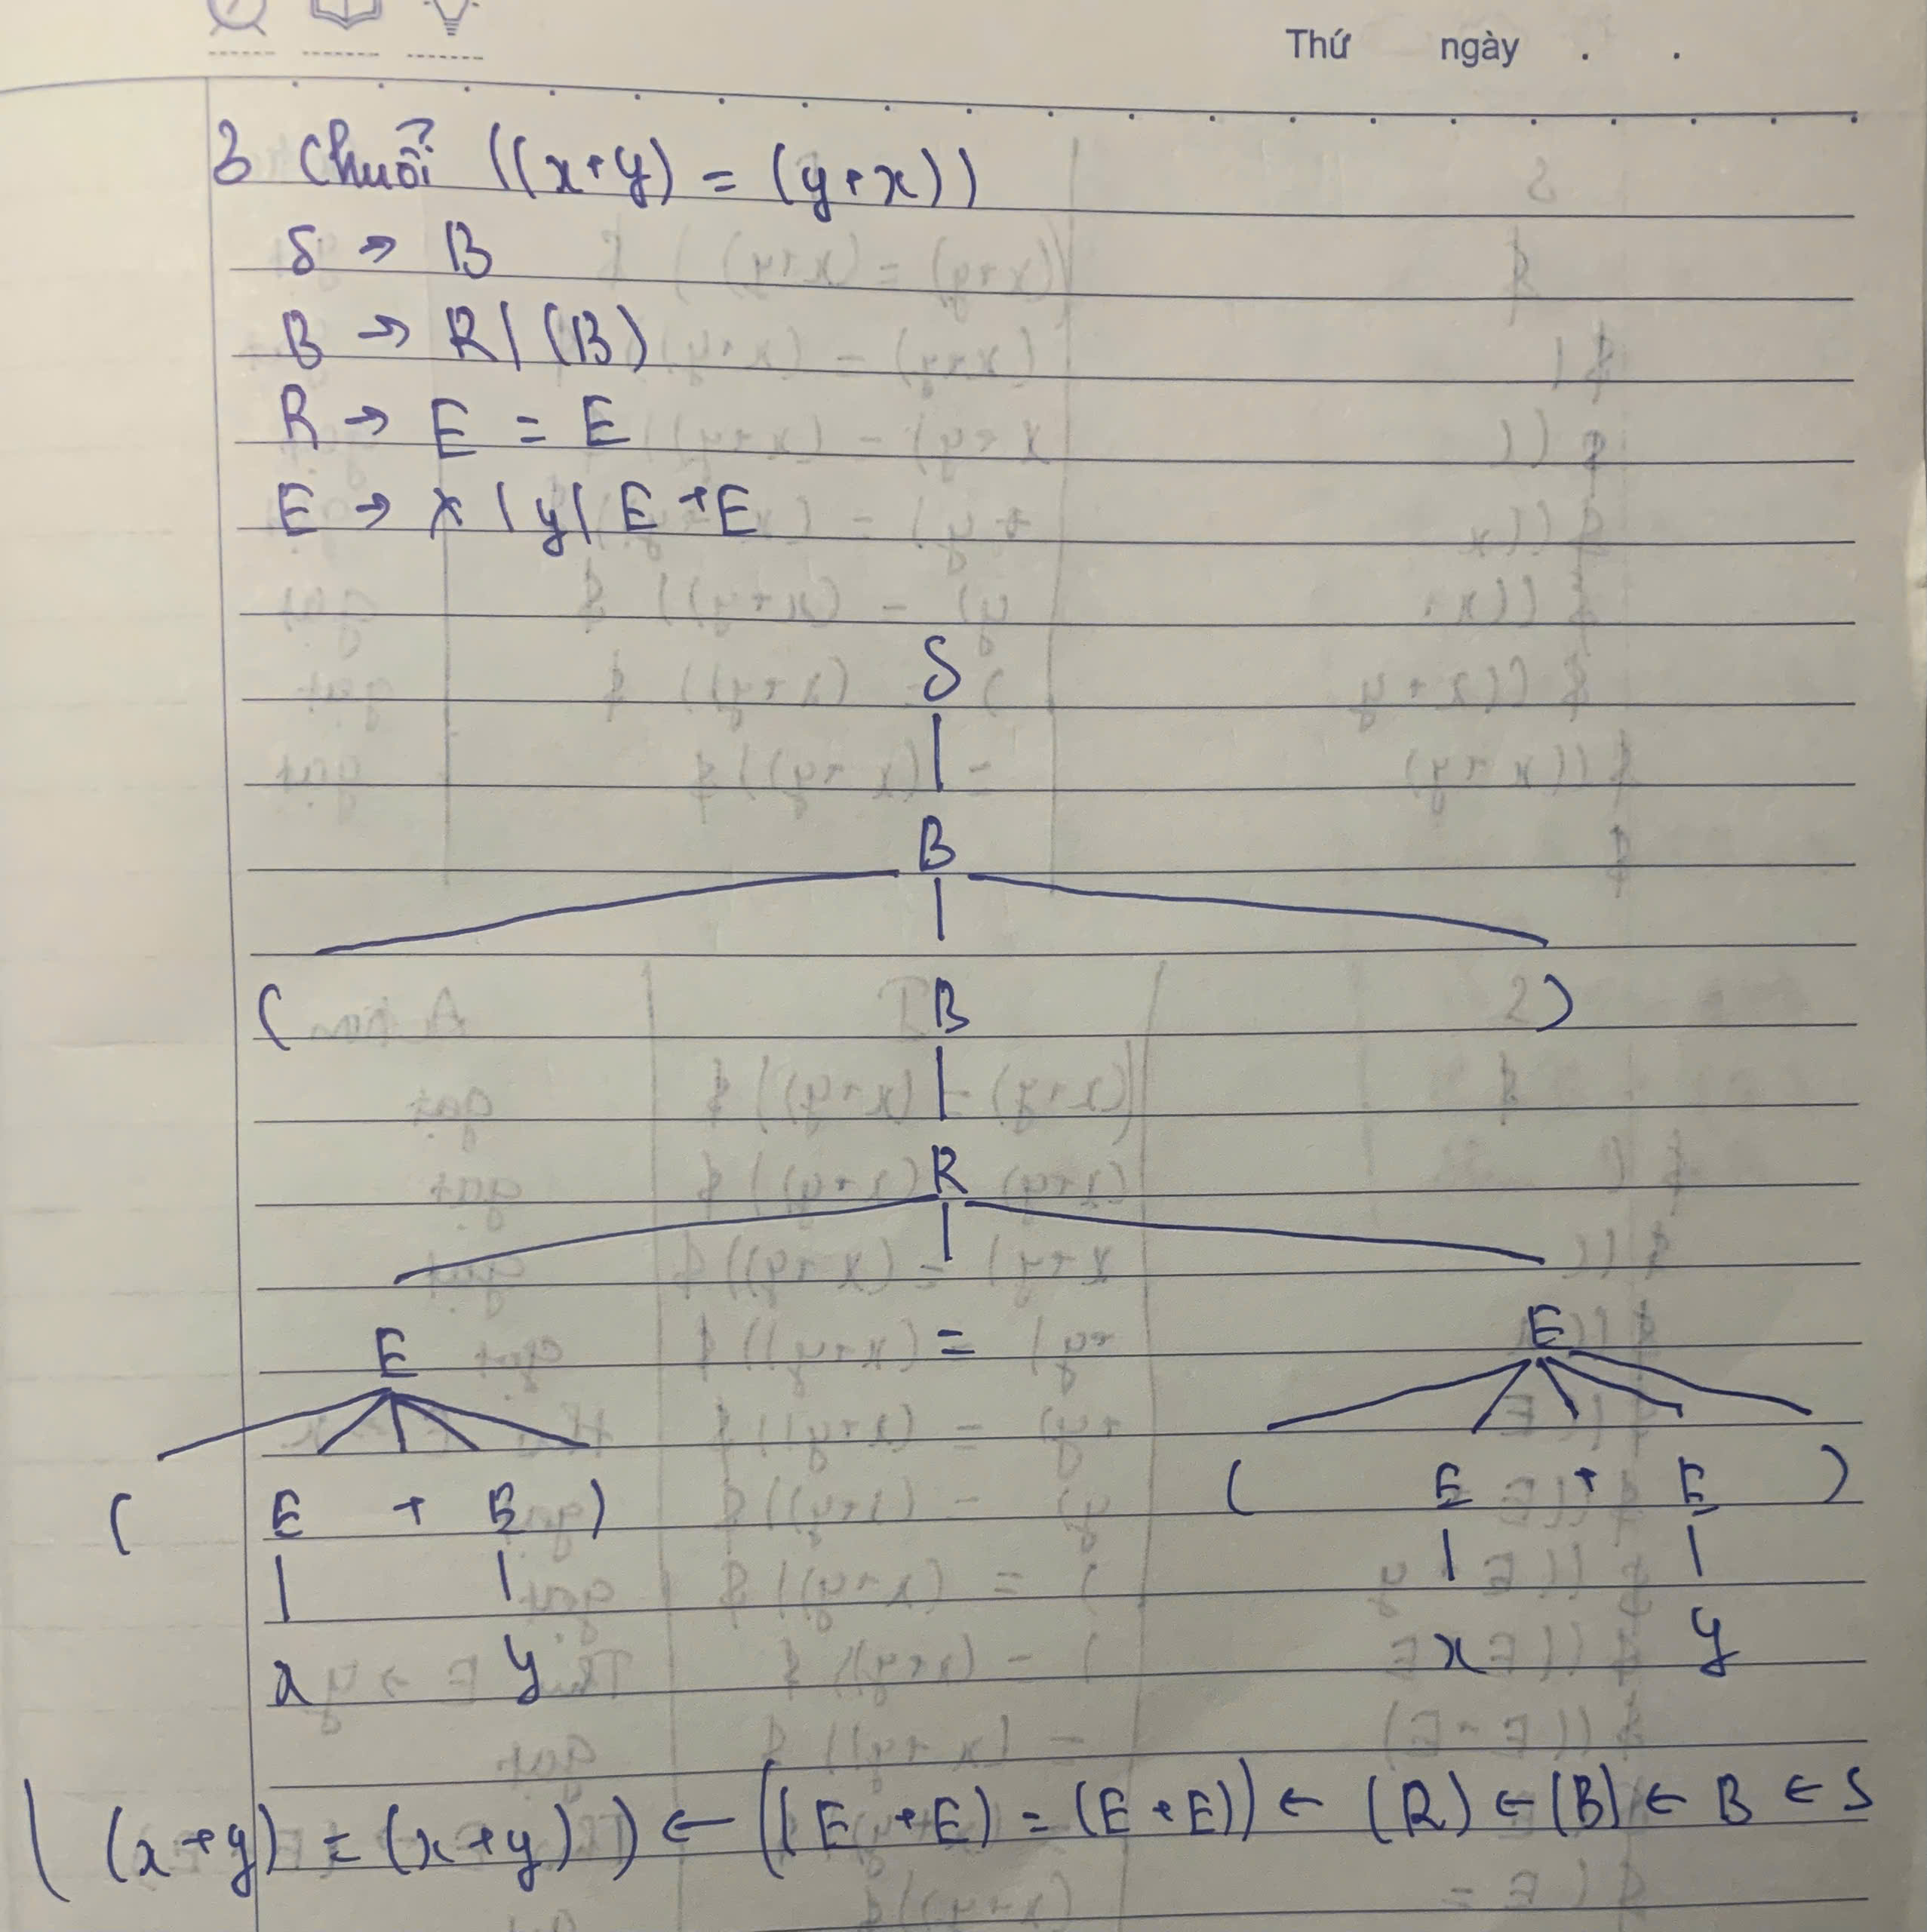 Thứ ngày . .
3 Chuỗi ((x+y) = (y+x))
S → B
B → R | (B)
R → E = E
E → x | y | E + E
S
B
( B )
R
E = E
( E + E ) ( E + E )
x y x y
( (x+y) = (x+y) ) ← ((E + E) = (E + E)) ← (R) ← (B) ← B ← S